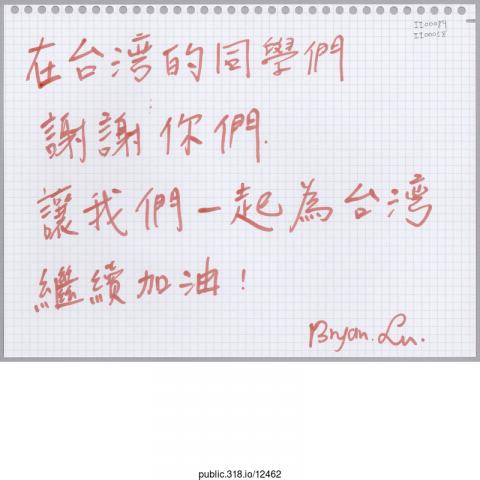 IL00089
IL00058
在台湾的同學們
謝謝你們.
讓我們一起為台湾
繼續加油！
Bryan. Lu.
public.318.io/12462